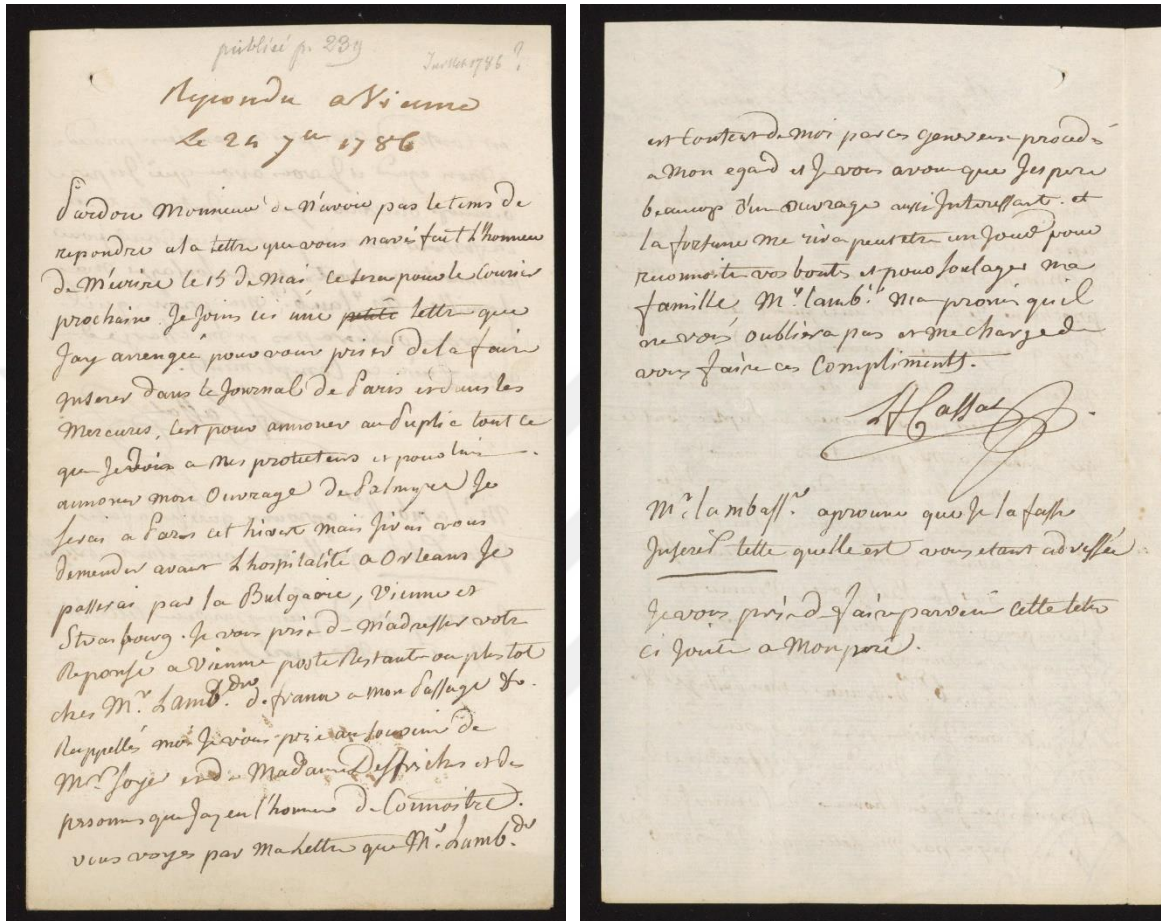 publiée p. 239
Juillet 1786 ?
Repondu a Vienne
Le 24 7bre 1786
Pardon Monsieur de N'avoir pas le tems de
repondre a la lettre que vous mavés fait L'honneur
De M'ecrire le 15 de Mai. Ce sera pour le Courier
prochain. Je Joins ici une petite lettre que
Jay arrengée pour vous prier de la faire
Inserer dans le Journal de Paris et dans les
Mercures, C'est pour annoncer au Public tout ce
que Je dois a Mes protecteurs et pour
annoncer mon Ouvrage de Palmyre Je
serai a Paris cet hiver mais J'irai vous
demender avant L'hospitalité a Orleans Je
passerai par la Bulgarie, Vienne et
Strasbourg. Je vous prie de M'adresser votre
Reponse a Vienne poste Restante ou plustot
ches Mr. L'amb.dr de france a mon Passage &c.
Rappellés moi Je vous prie au souvenir de
Mr. Soyer et de Madame Desfriches et des
personnes que Jay eu l'honneur de Connoitre.
vous voyes par Ma Lettre que Mr. L'amb.dr
est Content de Moi par ces Genereux procedés
a Mon egard et Je vous avoue que J'espere
beaucoup d'un Ouvrage aussi Interessant. et
la fortune me rira peut etre un Jour pour
reconnoitre vos bontés et pour soulager ma
famille Mr. lamb.r Ma promis qu'il
ne vous oubliera pas et me charge de
vous faire ces Compliments.
LF Cassas
Mr. l'ambassr. aprouve que Je la fasse
Inserer telle quelle est vous etant adressée
Je vous prie de faire parvenir cette letre
ci Jointe a Mon pere.